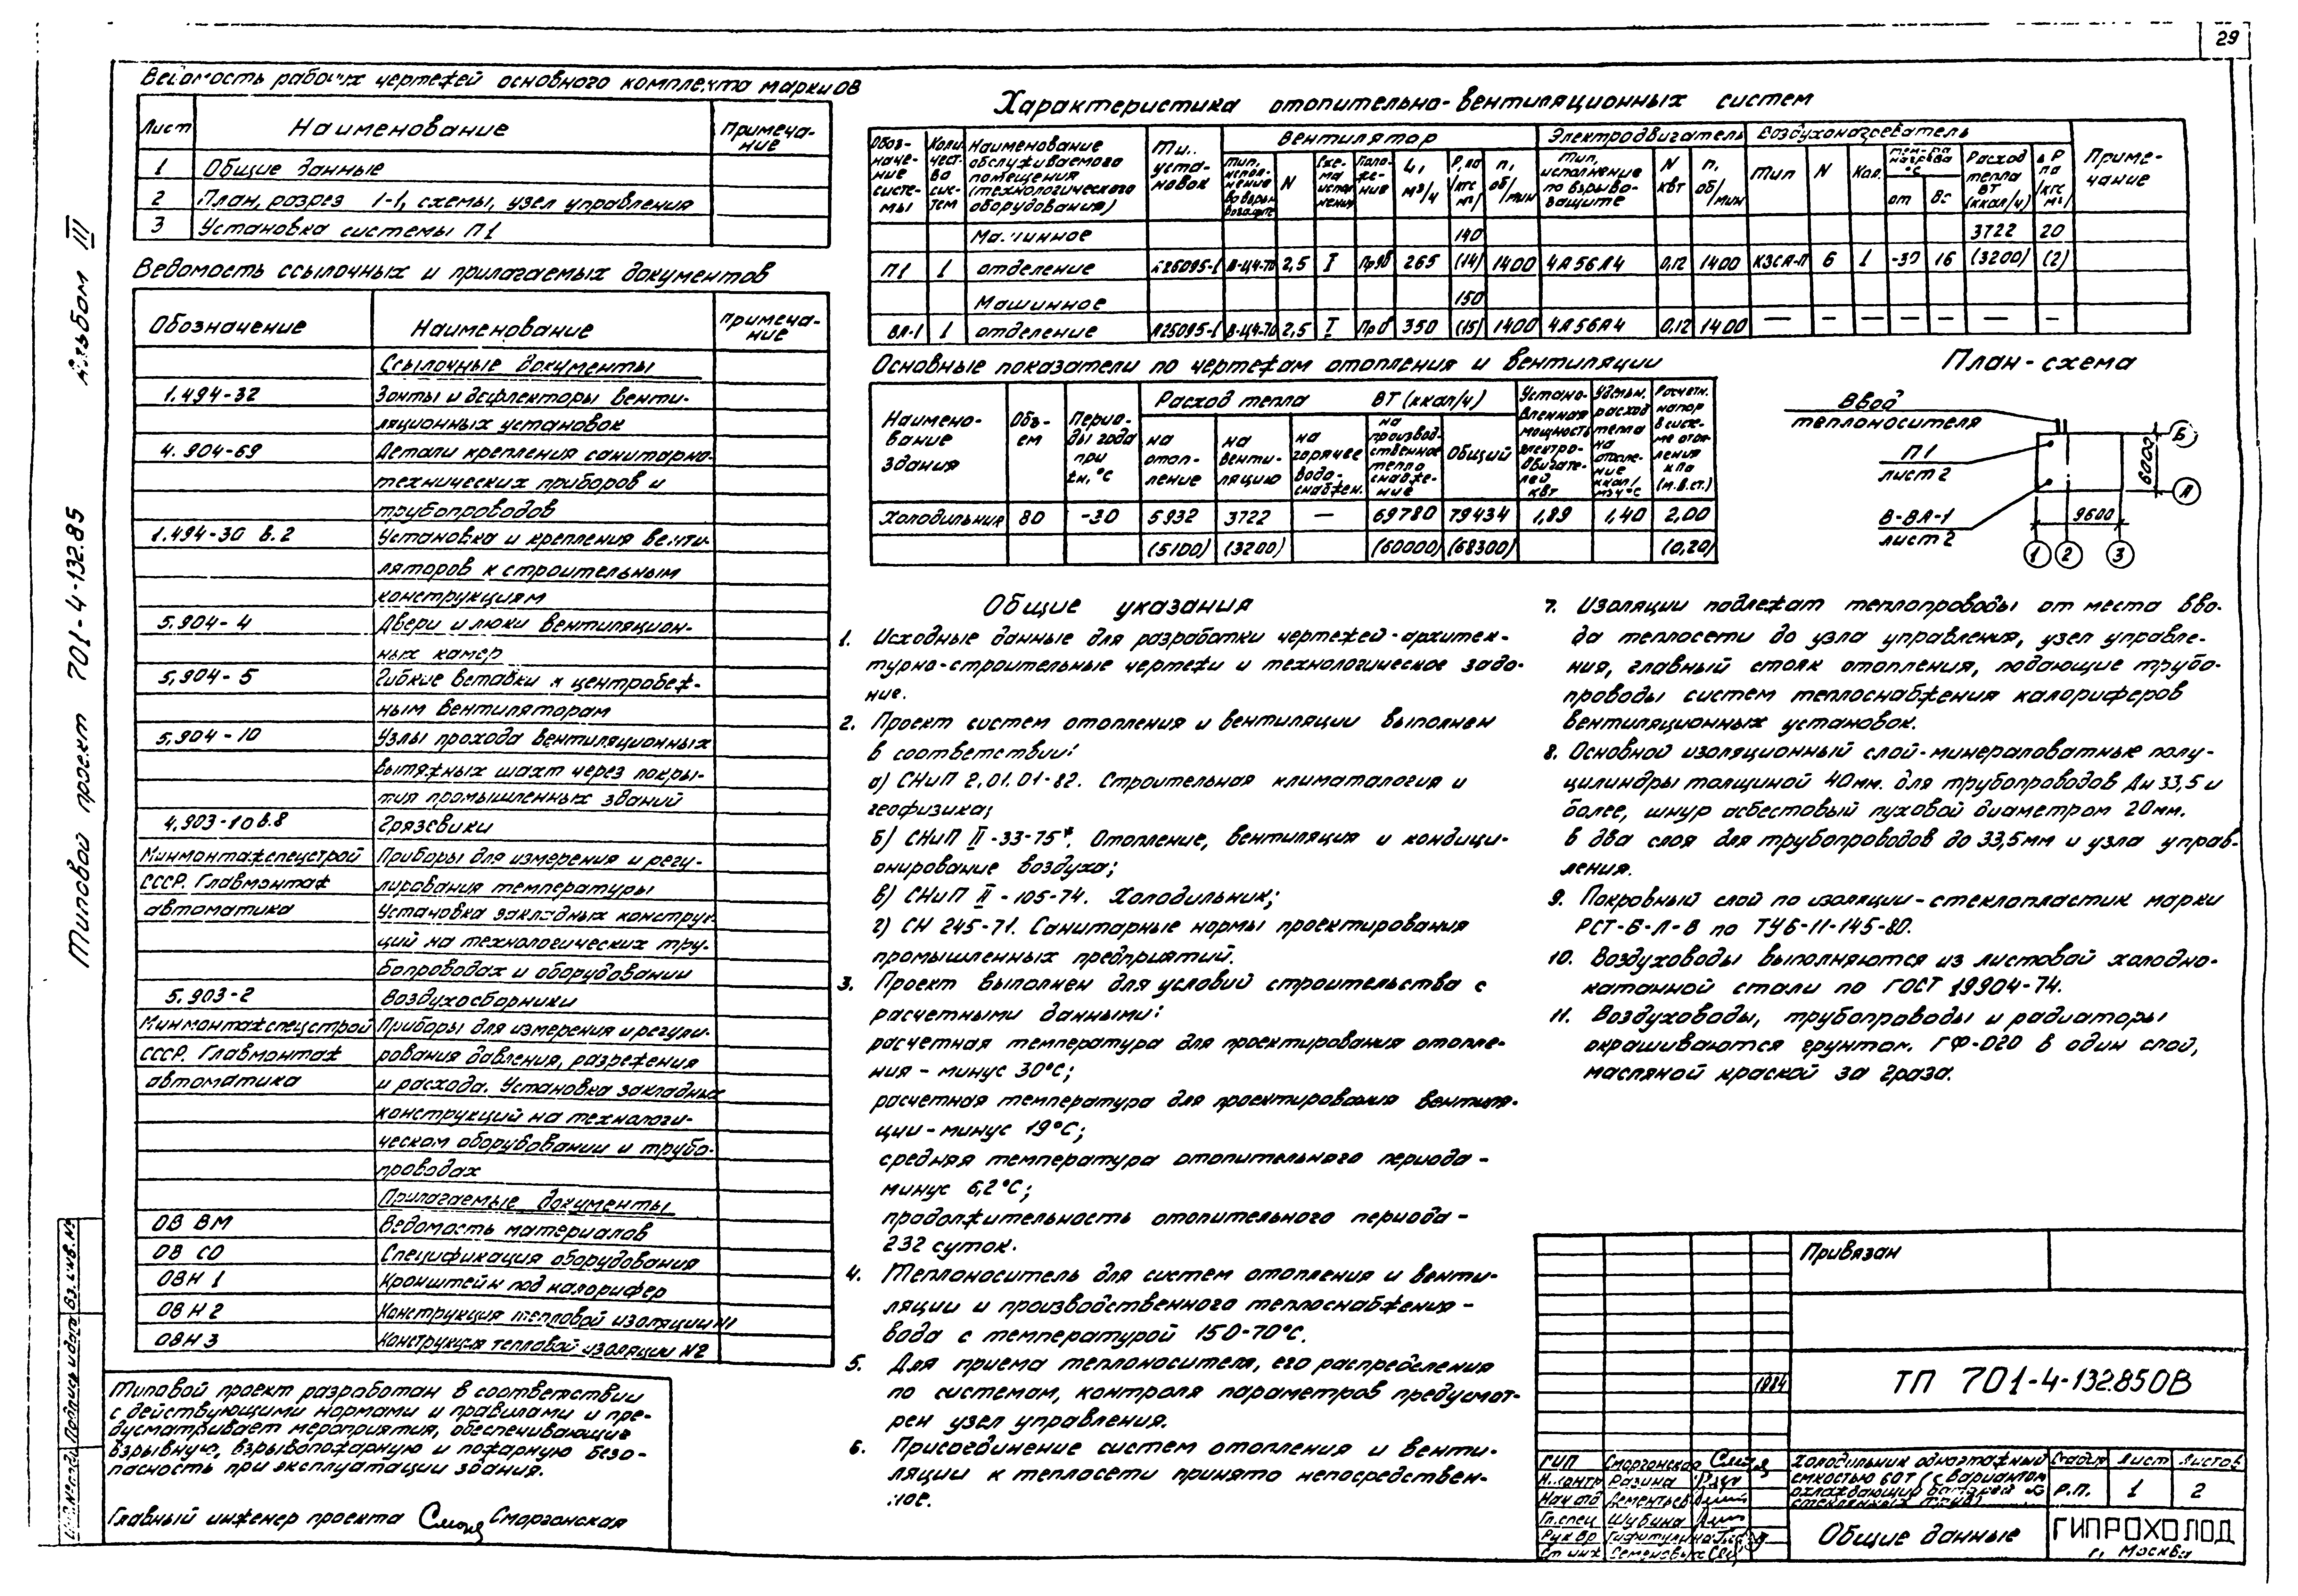 29
Альбом III
Типовой проект 701-4-132.85
Ведомость рабочих чертежей основного комплекта марки ОВ
Лист Наименование Примеча-
ние
1 Общие данные
2 План, разрез 1-1, схемы, узел управления
3 Установка системы П1
Ведомость ссылочных и прилагаемых документов
Обозначение Наименование Примеча-
ние
Ссылочные документы
1.494-32 Зонты и дефлекторы венти-
ляционных установок
4.904-69 Детали крепления санитарно-
технических приборов и
трубопроводов
1.494-30 в.2 Установка и крепления венти-
ляторов к строительным
конструкциям
5.904-4 Двери и люки вентиляцион-
ных камер
5.904-5 Гибкие вставки к центробеж-
ным вентиляторам
5.904-10 Узлы прохода вентиляционных
вытяжных шахт через покры-
тия промышленных зданий
4.903-10 в.8 Грязевики
Минмонтажспецстрой Приборы для измерения и регу-
СССР. Главмонтаж лирования температуры
автоматика Установка закладных конструк-
ций на технологических тру-
бопроводах и оборудовании
5.903-2 Воздухосборники
Минмонтажспецстрой Приборы для измерения и регули-
СССР. Главмонтаж рования давления, разрежения
автоматика и расхода. Установка закладных
конструкций на технологи-
ческом оборудовании и трубо-
проводах
Прилагаемые документы
ОВ ВМ Ведомость материалов
ОВ СО Спецификация оборудования
ОВН 1 Кронштейн под калорифер
ОВН 2 Конструкция тепловой изоляции N1
ОВН 3 Конструкция тепловой изоляции N2
Типовой проект разработан в соответствии
с действующими нормами и правилами и пре-
дусматривает мероприятия, обеспечивающие
взрывную, взрывопожарную и пожарную безо-
пасность при эксплуатации здания.
Главный инженер проекта Сморгонская
Характеристика отопительно-вентиляционных систем
Обоз-
наче-
ние
систе-
мы
Коли-
чест-
во
сис-
тем
Наименование
обслуживаемого
помещения
(технологического
оборудования)
Тип
уста-
новок
Вентилятор
Тип,
испол-
нение
по взрыво-
защите
N
Схе-
ма
испол-
нения
Поло-
же-
ние
L,
м³/ч
Р, па
(кгс/м²)
n,
об/мин
Электродвигатель
Тип,
исполнение
по взрыво-
защите
N
квт
n,
об/мин
Воздухонагреватель
Тип N Кол.
Тем-ра
нагрева
°С
от до
Расход
тепла
ВТ
(ккал/ч)
ΔР
па
(кгс/м²)
Приме-
чание
Машинное 140 3722 20
П1 1 отделение А25095-1 В-Ц4-70 2,5 I Пр90 265 (14) 1400 4А56А4 0,12 1400 КЗСА-П 6 1 -30 16 (3200) (2)
Машинное 150
ВА-1 1 отделение А25095-1 В-Ц4-70 2,5 I Пр0 350 (15) 1400 4А56А4 0,12 1400 — — — — — — —
Основные показатели по чертежам отопления и вентиляции
Наимено-
вание
здания
Объ-
ем
Перио-
ды года
при
tн, °С
Расход тепла ВТ (ккал/ч)
на
отоп-
ление
на
венти-
ляцию
на
горячее
водо-
снабжен.
на
производ-
ственное
тепло-
снабже-
ние
Общий
Устано-
вленная
мощность
электро-
двигате-
лей
квт
Удельн.
расход
тепла
на
отопле-
ние
ккал/
м³ч°С
Расчетн.
напор
в систе-
ме отоп-
ления
кПа
(м.в.ст.)
Холодильник 80 -30 5932 3722 — 69780 79434 1,89 1,40 2,00
(5100) (3200) (60000) (68300) (0,20)
План-схема
Ввод
теплоносителя
П1
лист 2
В-ВА-1
лист 2
Б
А
6000
9600
1 2 3
Общие указания
1. Исходные данные для разработки чертежей-архитек-
турно-строительные чертежи и технологическое зада-
ние.
2. Проект систем отопления и вентиляции выполнен
в соответствии:
а) СНиП 2.01.01-82. Строительная климатология и
геофизика;
б) СНиП II-33-75*. Отопление, вентиляция и кондици-
онирование воздуха;
в) СНиП II-105-74. Холодильник;
г) СН 245-71. Санитарные нормы проектирования
промышленных предприятий.
3. Проект выполнен для условий строительства с
расчетными данными:
расчетная температура для проектирования отопле-
ния - минус 30°С;
расчетная температура для проектирования вентиля-
ции - минус 19°С;
средняя температура отопительного периода -
минус 6,2°С;
продолжительность отопительного периода -
232 суток.
4. Теплоноситель для систем отопления и венти-
ляции и производственного теплоснабжения -
вода с температурой 150-70°С.
5. Для приема теплоносителя, его распределения
по системам, контроля параметров предусмот-
рен узел управления.
6. Присоединение систем отопления и венти-
ляции к теплосети принято непосредствен-
ное.
7. Изоляции подлежат теплопроводы от места вво-
да теплосети до узла управления, узел управле-
ния, главный стояк отопления, подающие трубо-
проводы систем теплоснабжения калориферов
вентиляционных установок.
8. Основной изоляционный слой-минераловатные полу-
цилиндры толщиной 40мм. для трубопроводов Дн 33,5 и
более, шнур асбестовый пуховой диаметром 20мм.
в два слоя для трубопроводов до 33,5мм и узла управ-
ления.
9. Покровный слой по изоляции-стеклопластик марки
РСТ-Б-Л-В по ТУ6-11-145-80.
10. Воздуховоды выполняются из листовой холодно-
катанной стали по ГОСТ 19904-74.
11. Воздуховоды, трубопроводы и радиаторы
окрашиваются грунтом. ГФ-020 в один слой,
масляной краской за 2 раза.
Привязан
1984
ТП 701-4-132.85 ОВ
ГИП Сморгонская
Н.контр Разина
Нач отд Дементьев
Гл.спец Шубина
Рук вр
Ст инж Семеновых
Холодильник одноэтажный
емкостью 60т (с вариантом
охлаждающих батарей из
стеклянных труб)
Стадия Лист Листов
Р.П. 1 2
Общие данные
ГИПРОХОЛОД
г. Москва